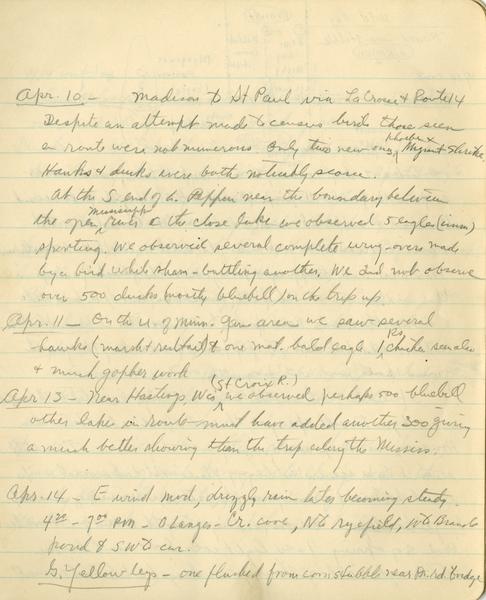 Apr. 10 - Madison to St Paul via LaCrosse & Route 14
Despite an attempt made to census birds those seen
en route were not numerous. Only two new ones, & Migrant Shrike.
Hawks & ducks were both noticably scarce.
At the S. end of L. Peppin near the boundary between
the open Mississippi river & the close lake we observed 5 eagles (imm)
sporting. We observed several complete wing-overs made
by a bird while sham-battling another. We did not observe
over 500 ducks (mostly bluebill) on the trip up.
Apr. 11 - On the U. of Minn. area we saw several
hawks (marsh & redtail) & one mat. bald eagle, 1 seen also
& much gopher work
Apr 13 - Near Hastings Wis (St Croix R.) we observed perhaps 500 bluebill
other lakes in route must have added another 300 giving
a much better showing than the trip along the Mississ.
Apr. 14 - E wind mod, drizzly rain later becoming steady.
4:00 - 7:00 PM - Cr. cove, N to ryefield, W to
pond & SW to car.
G. Yellowlegs - one flushed from corn stubble near bridge